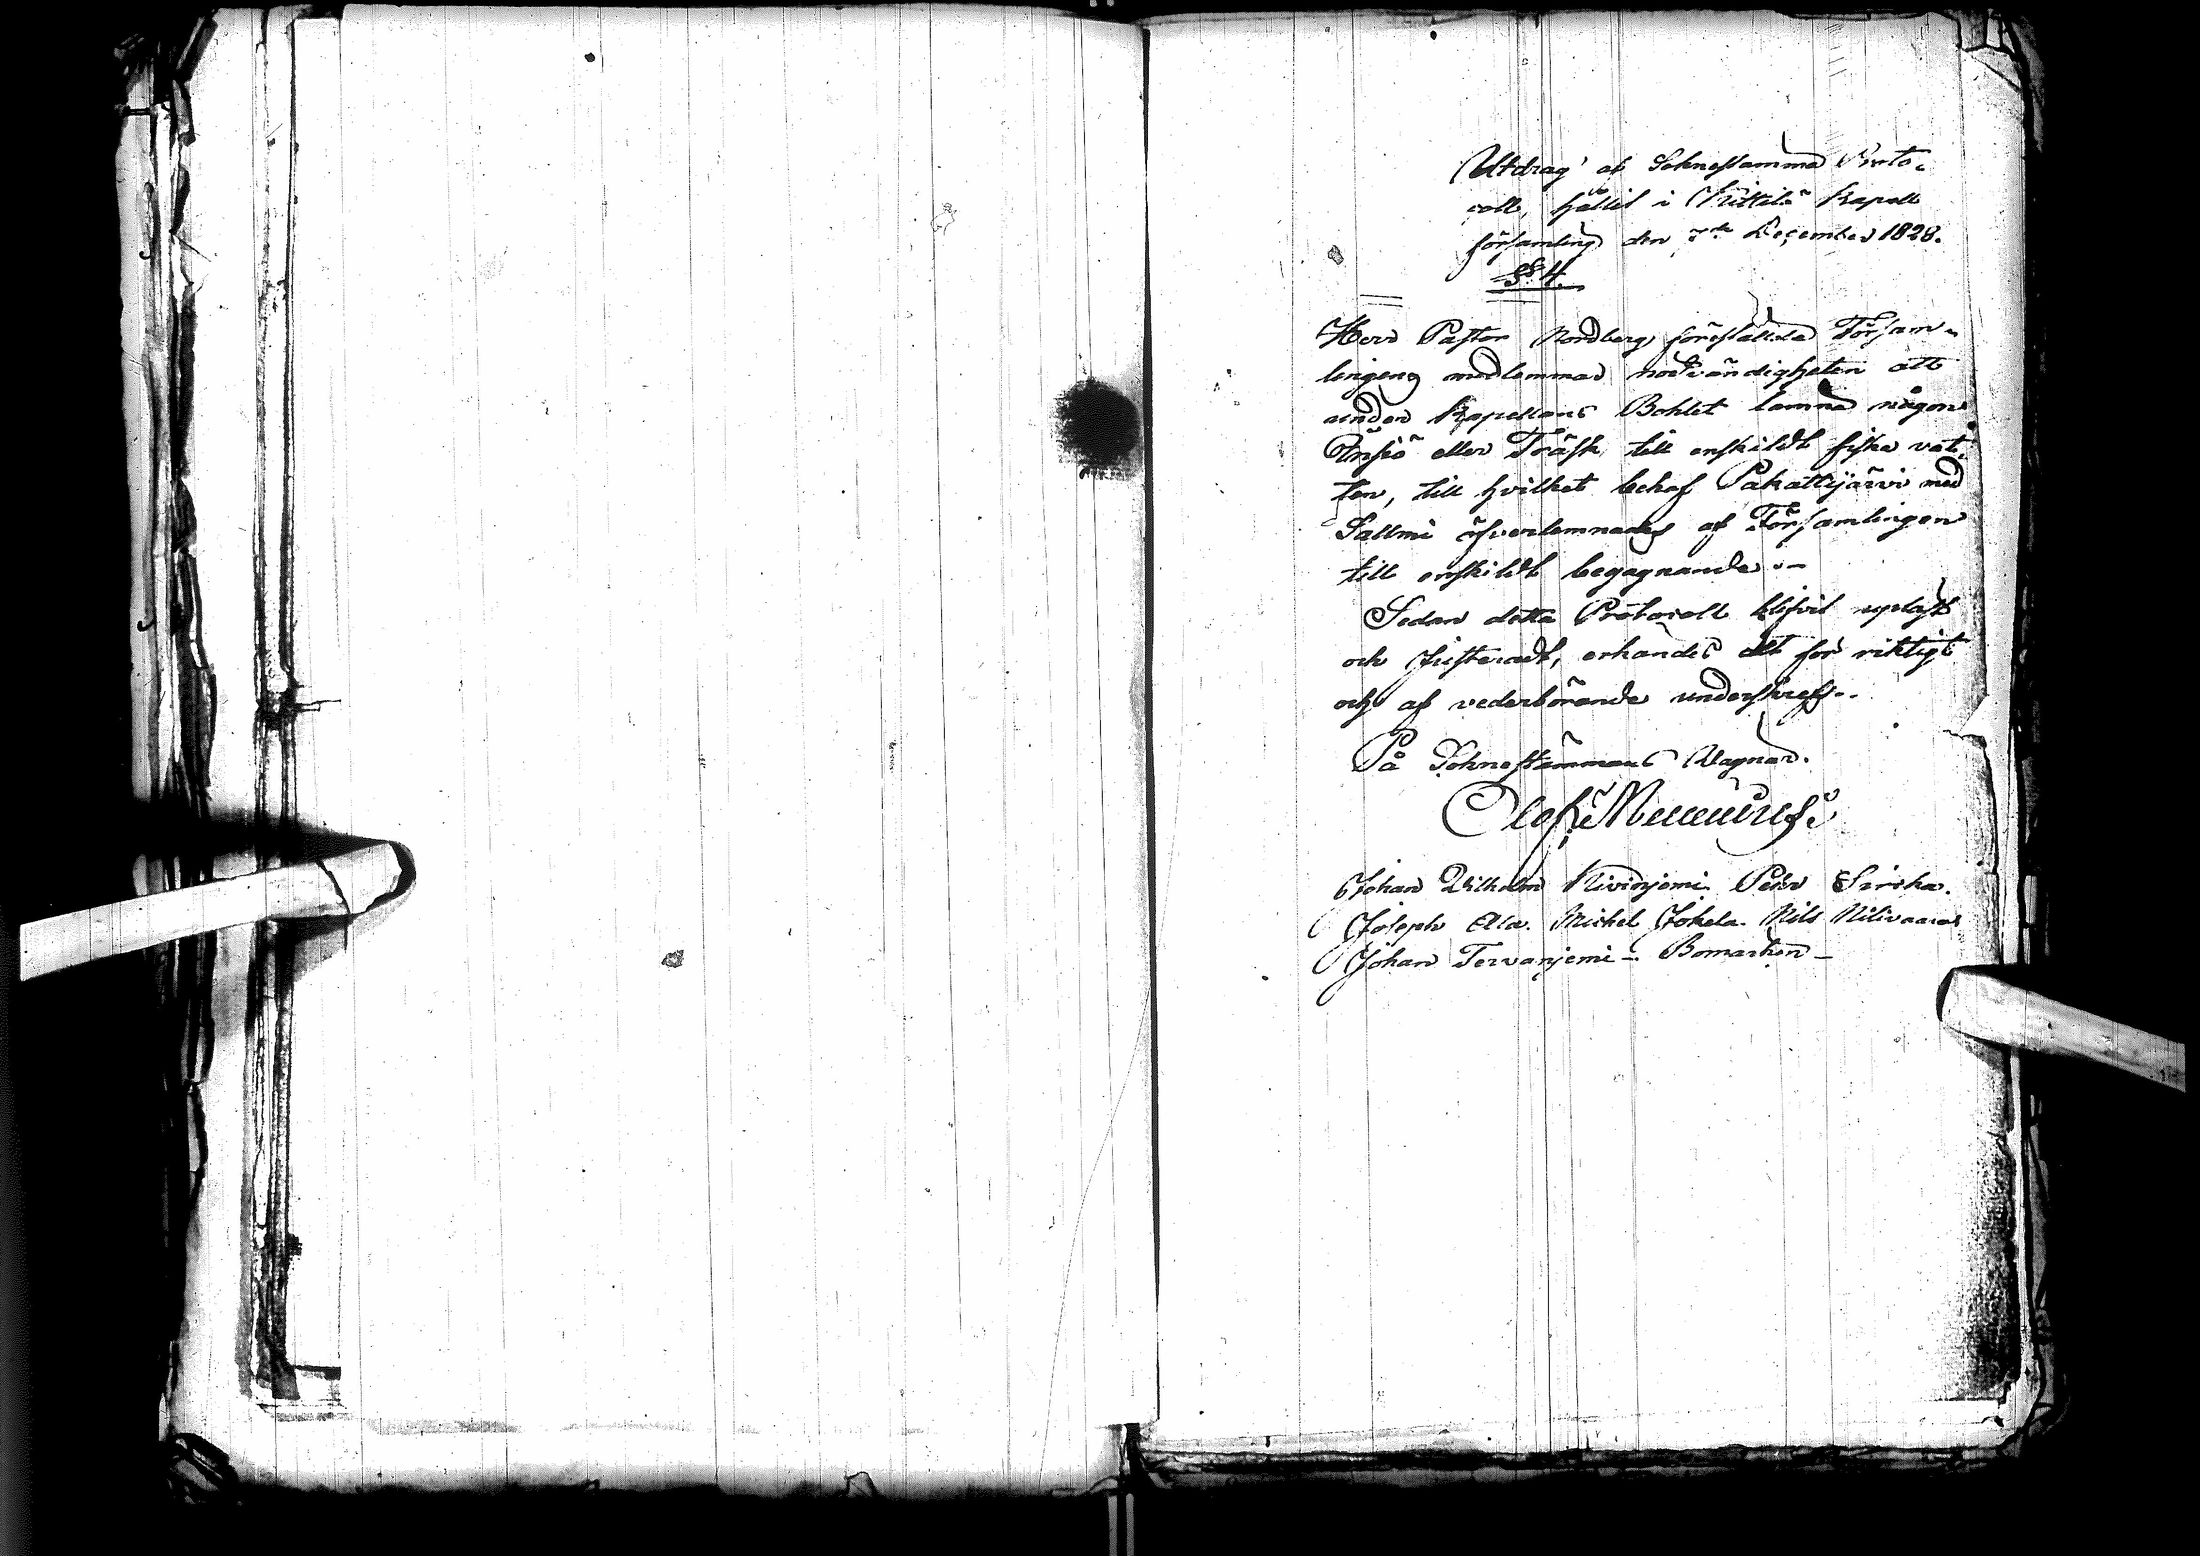 Utdrag af Sohnestämma Proto-
coll, hållit i Kittilä Kapell
församling den 7de December 1828.
§ 4.
Herr Pastor Nordberg föreställde Försam-
lingens medlemmar nödvändigheten att
under Kapellans Bohlet lämna någon
Insiö eller Träsk till enskildt fiske vat-
ten, till hvilket behof Pakattijärvi med
Sallmi öfverlemnades af Församlingen
till enskildt begagnande.-
Sedan detta Protocoll blifvit upläst
och justeradt, erkändes det för riktigt
och af vederbörande underskrefs..
På Sohnestämmans Vägnar.
Olof
Johan Vilhelm Kivinjemi. Petter Sirka.
Joseph Alla. Michel Jokela. Nils Nilivaara
Johan Tervanjemi - Bomärken -